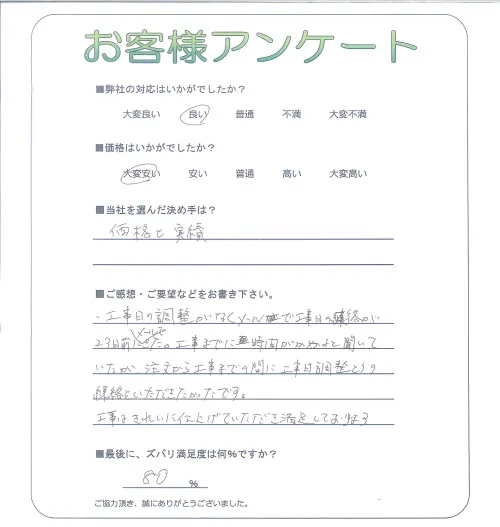 お客様アンケート
■弊社の対応はいかがでしたか？
大変良い 良い 普通 不満 大変不満
■価格はいかがでしたか？
大変安い 安い 普通 高い 大変高い
■当社を選んだ決め手は？
価格と実績
■ご感想・ご要望などをお書き下さい。
・工事日の調整がなくメールで工事日の連絡が
メールで
2日前に 工事までに 時間がかかると聞いて
いたが、注文から工事までの間に工事日調整
連絡をいただきたかったです。
工事はきれいに仕上げていただき満足しております
■最後に、ズバリ満足度は何％ですか？
80 %
ご協力頂き、誠にありがとうございました。